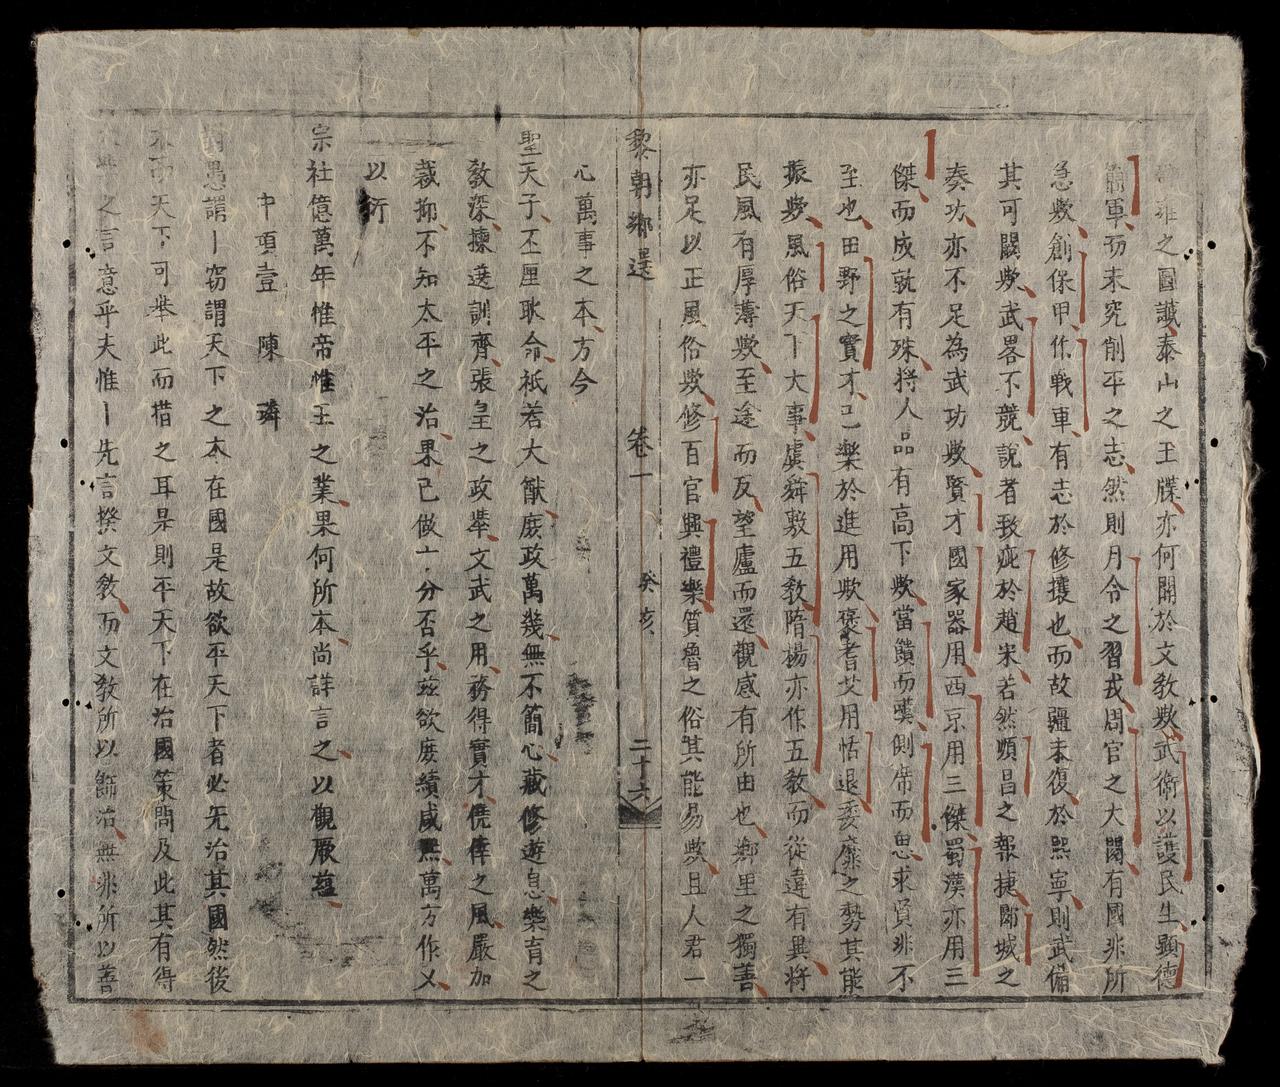 雍之圖讖泰山之玉牒亦何関於文教歟武衛以護民生顕德
簡軍而未究削平之志然則月令之習戎周官之大閱有國非所
急歟創保甲作戰車有志於修攘也而故疆未復於熙寧則武備
其可闕歟武畧不競說者致疵於趙宋若然順昌之報捷郾城之
奏功亦不足為武功歟賢才國家器用西京用三傑蜀漢亦用三
傑而成就有殊將人品有高下歟當饋而嘆側席而思求賢非不
至也田野之賢才已樂於進用歟褒耆艾用恬退委靡之勢其能
振歟風俗天下大事虞舜敷五教隋楊亦作五教而從違有異將
民風有厚薄歟至途而反望廬而還觀感有所由也鄉里之獨善
亦足以正風俗歟修百官興禮樂質魯之俗其能易歟且人君一
黎朝鄉選 卷一 癸亥 二十六
心萬事之本方今
聖天子丕釐耿命祇若大猷庶政萬幾無不簡心藏修遊息樂育之
教深揀選訓齊張皇之政舉文武之用務得實才僥倖之風嚴加
裁抑不知太平之治果已做十分否乎茲欲庶績咸熙萬方作乂
以衍
宗社億萬年惟帝惟王之業果何所本尚詳言之以觀厥蘊
中項壹 陳 璘
對愚謂〡窃謂天下之本在國是故欲平天下者必先治其國然後
本而天下可舉此而措之耳是則平天下在治國策問及此其有得
之言意乎夫惟〡先言揆文教而文教所以飾治無非所以善